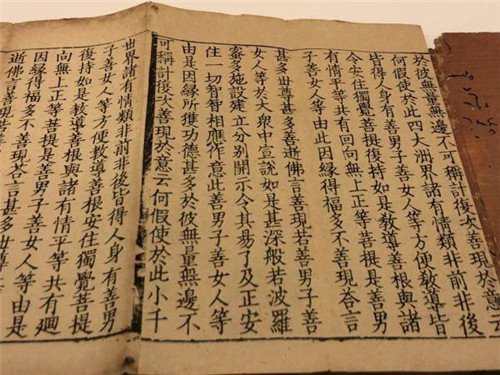 於彼無量無邊不可稱計復次善現於意云
何假使於此四大洲界諸有情類非前非後
皆得人身有善男子善女人等方便教導皆
令安住獨覺菩提復持如是教導善根與諸
有情平等共有回向無上正等菩提是善男
子善女人等由此因緣得福多不善現答言
甚多世尊甚多善逝佛言善現若善男子善
女人等於大眾中宣說如是甚深般若波羅
蜜多施設建立分別開示令其易了及正安
住一切智智相應作意此善男子善女人等
由是因緣所獲功德甚多於彼無量無邊不
可稱計復次善現於意云何假使於此小千
世界諸有情類非前非後皆得人身有善男
子善女人等方便教導善根安住獨覺菩提
復持如是教導善根與諸有情平等共有廻
向無上正等菩提是善男子善女人等由是
因緣得福多不善現答言甚多世尊
逝佛言善現